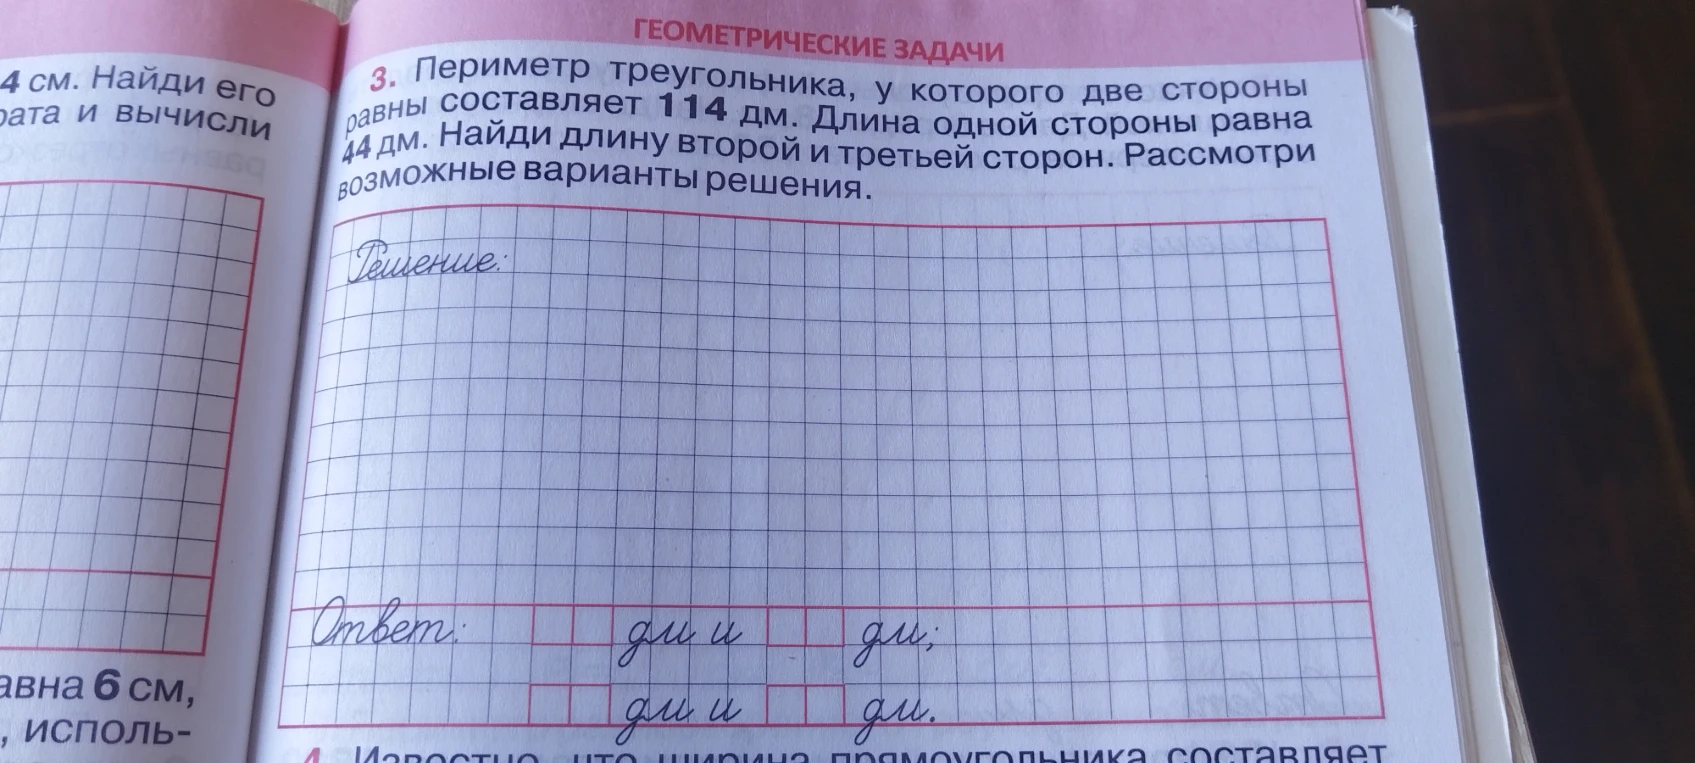 ГЕОМЕТРИЧЕСКИЕ ЗАДАЧИ
4 см. Найди его
рата и вычисли
авна 6 см,
, исполь-
3. Периметр треугольника, у которого две стороны
равны составляет 114 дм. Длина одной стороны равна
44 дм. Найди длину второй и третьей сторон. Рассмотри
возможные варианты решения.
Решение:
Ответ: дм и дм;
дм и дм.
4. Известно, что ширина прямоугольника составляет